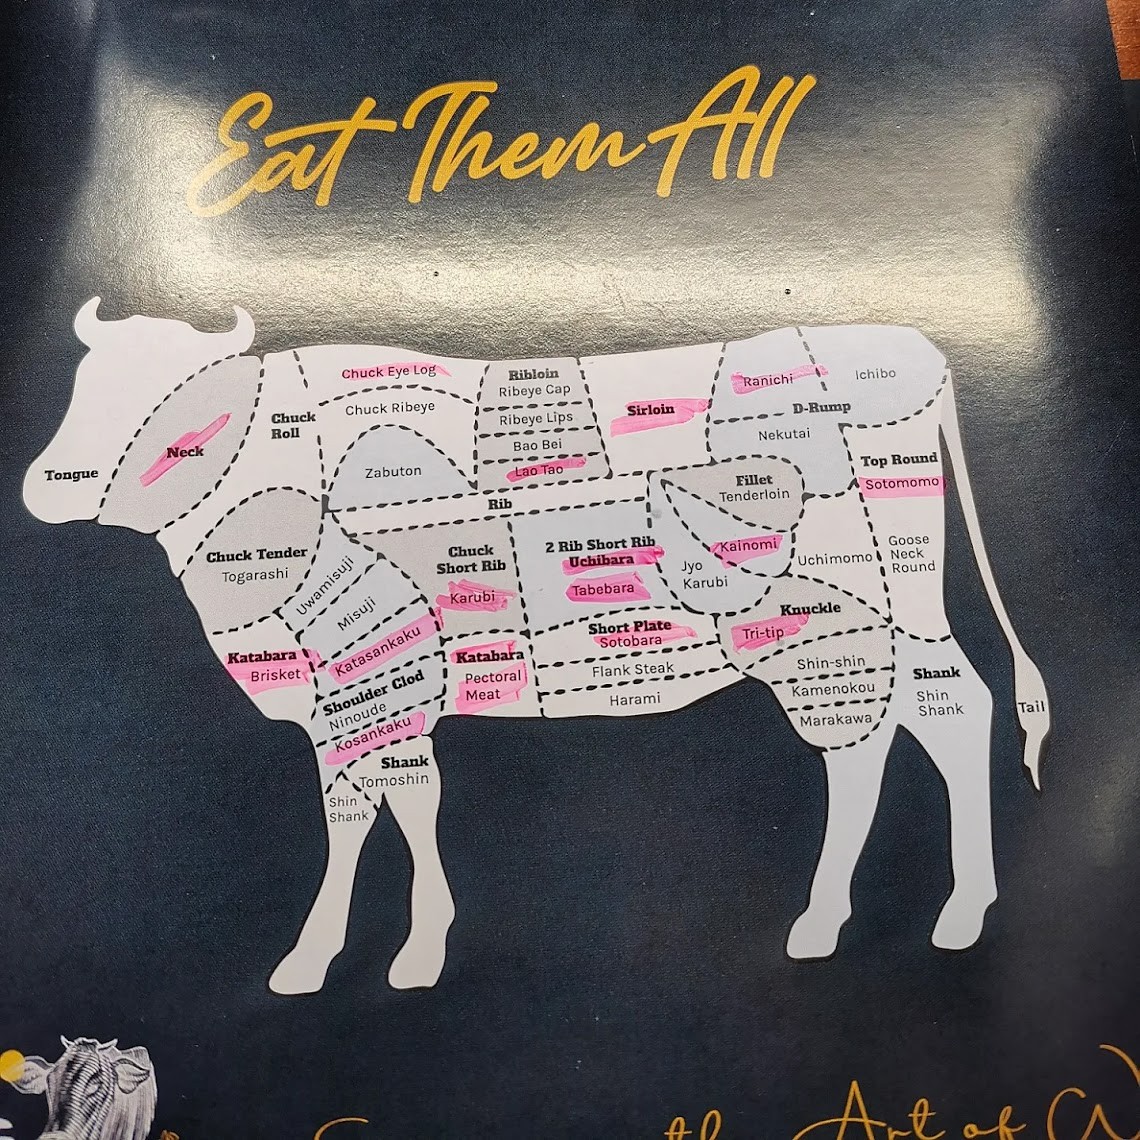 Eat Them All
Tongue
Neck
Chuck
Roll
Chuck Eye Log
Chuck Ribeye
Zabuton
Ribloin
Ribeye Cap
Ribeye Lips
Bao Bei
Lao Tao
Sirloin
Ranichi
Ichibo
D-Rump
Nekutai
Top Round
Sotomomo
Goose
Neck
Round
Fillet
Tenderloin
Rib
Chuck Tender
Togarashi
Uwamisuji
Misuji
Katasankaku
Chuck
Short Rib
Karubi
2 Rib Short Rib
Uchibara
Tabebara
Jyo
Karubi
Kainomi
Uchimomo
Knuckle
Tri-tip
Shin-shin
Kamenokou
Marakawa
Short Plate
Sotobara
Flank Steak
Harami
Katabara
Brisket
Katabara
Pectoral
Meat
Shoulder Clod
Ninoude
Kosankaku
Shank
Tomoshin
Shin
Shank
Shank
Shin
Shank
Tail
the Art of